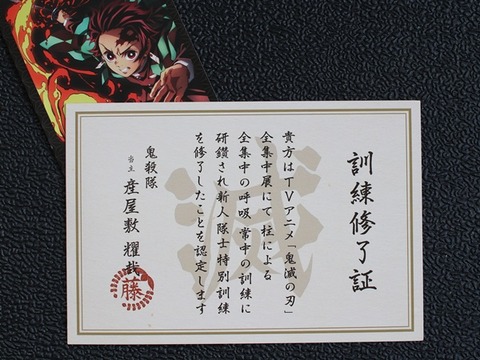 訓練修了証
貴方はTVアニメ「鬼滅の刃」
全集中展にて 柱による
全集中の呼吸 常中の訓練に
研鑽され新人隊士特別訓練
を修了したことを認定します
鬼殺隊
当主 産屋敷 耀哉
藤
滅